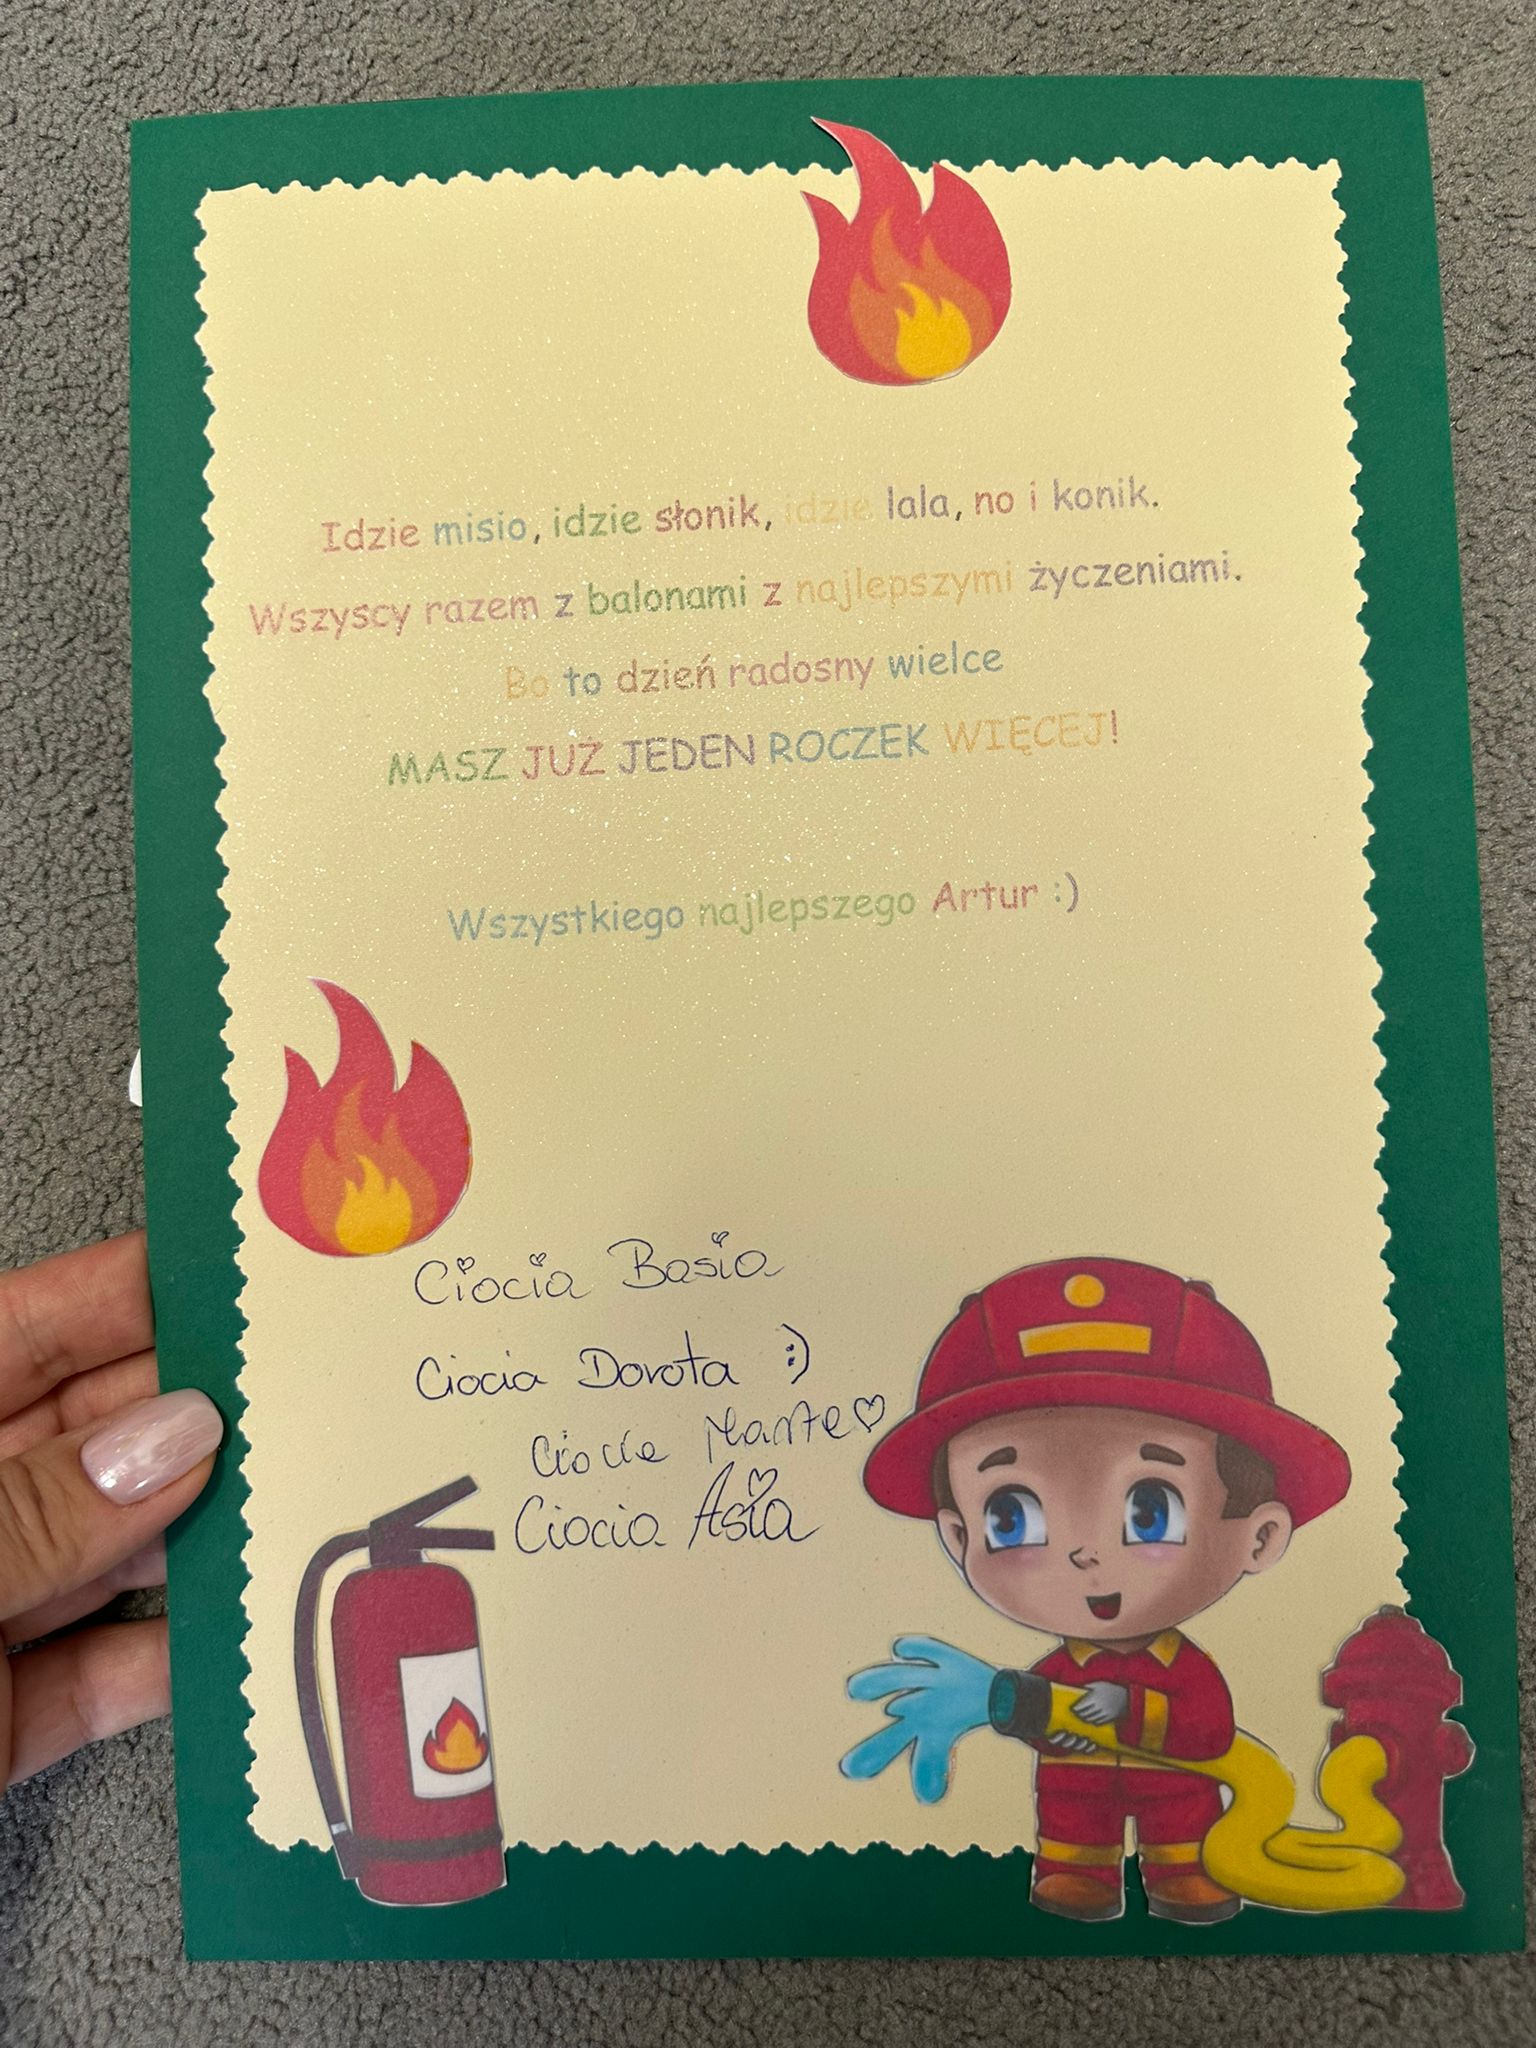 Idzie misio, idzie słonik, idzie lala, no i konik.
Wszyscy razem z balonami z najlepszymi życzeniami.
Bo to dzień radosny wielce
MASZ JUŻ JEDEN ROCZEK WIĘCEJ!
Wszystkiego najlepszego Artur :)
Ciocia Basia
Ciocia Dorota :)
Ciocia Marta ♡
Ciocia Asia